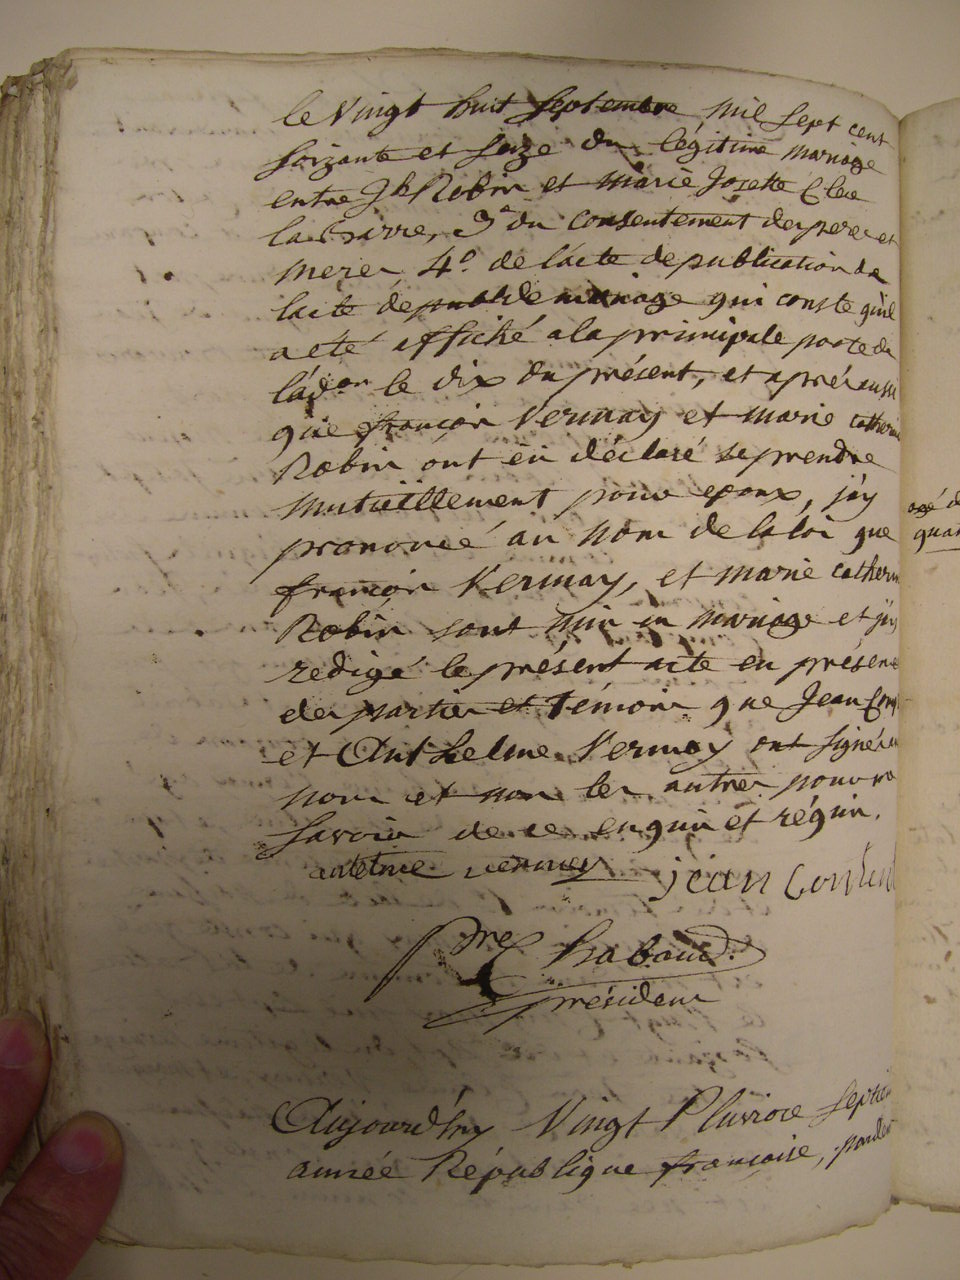 le Vingt huit septembre mil sept cent
soizante et seize du légitime mariage
entre Jh Robin et marie Josette Clee
la Barre, 3° du consentement des peres et
meres 4° de lacte de publication de
lacte de mariage qui conste quil
a eté affiché a la principale porte de
le dix du présent, et aprés aussi
que françois Vermay et marie catherine
Robin ont eu déclaré se prendre
mutuellement pour epoux, jay
prononcé au nom de la loi que
françois Vermay, et marie catherine
Robin sont unis en mariage et jay
redigé le présent acte en présence
des parties et témoins que Jean
et Anthelme Vermay ont signé
nous et non les autres pour ne
savoir de ce enquis et réquis.
antelme vermey jean
Pre Chabaud
président
Aujourd'huy Vingt Pluviose septiem
année République françoise, pardev
agé d
quat